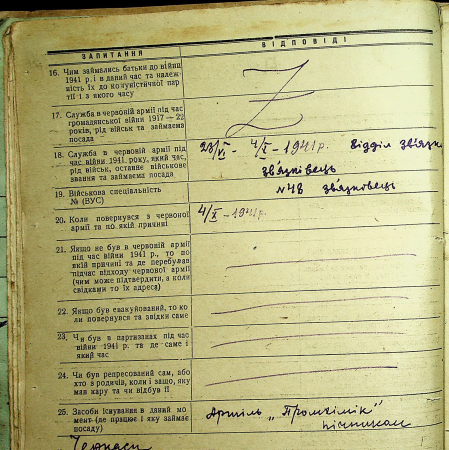 ЗАПИТАННЯ ВІДПОВІДІ
16. Чим займались батьки до війни
1941 р. і в даний час та належ-
ність їх до комуністичної пар-
тії і з якого часу
17. Служба в червоній армії під час
громадянської війни 1917—22
років, рід військ та займаєма
посада
18. Служба в червоній армії під
час війни 1941 року, який час,
рід військ, останнє військове
звання та займаєма посада
- 4/X - 1941 р. Відділ зв'язку
зв'язківець
19. Військова спеціяльність
№ (ВУС)
№48 зв'язківець
20. Коли повернувся з червоної
армії та по якій причині
4/X - 1941 р.
21. Якщо не був в червоній армії
під час війни 1941 р., то по
якій причині та де перебував
підчас відходу червоної армії
(чим може підтвердити, а коли
свідками то їх адреса)
22. Якщо був евакуйований, то ко-
ли повернувся та звідки саме
23. Чи був в партизанах під час
війни 1941 р. та де саме і
який час
24. Чи був репресований сам, або
хто з родичів, коли і защо, яку
мав кару та чи відбув її
25. Засоби існування в даний мо-
мент (де працює і яку займає
посаду)
Артіль „Промхімік"
пічником
Черкаси